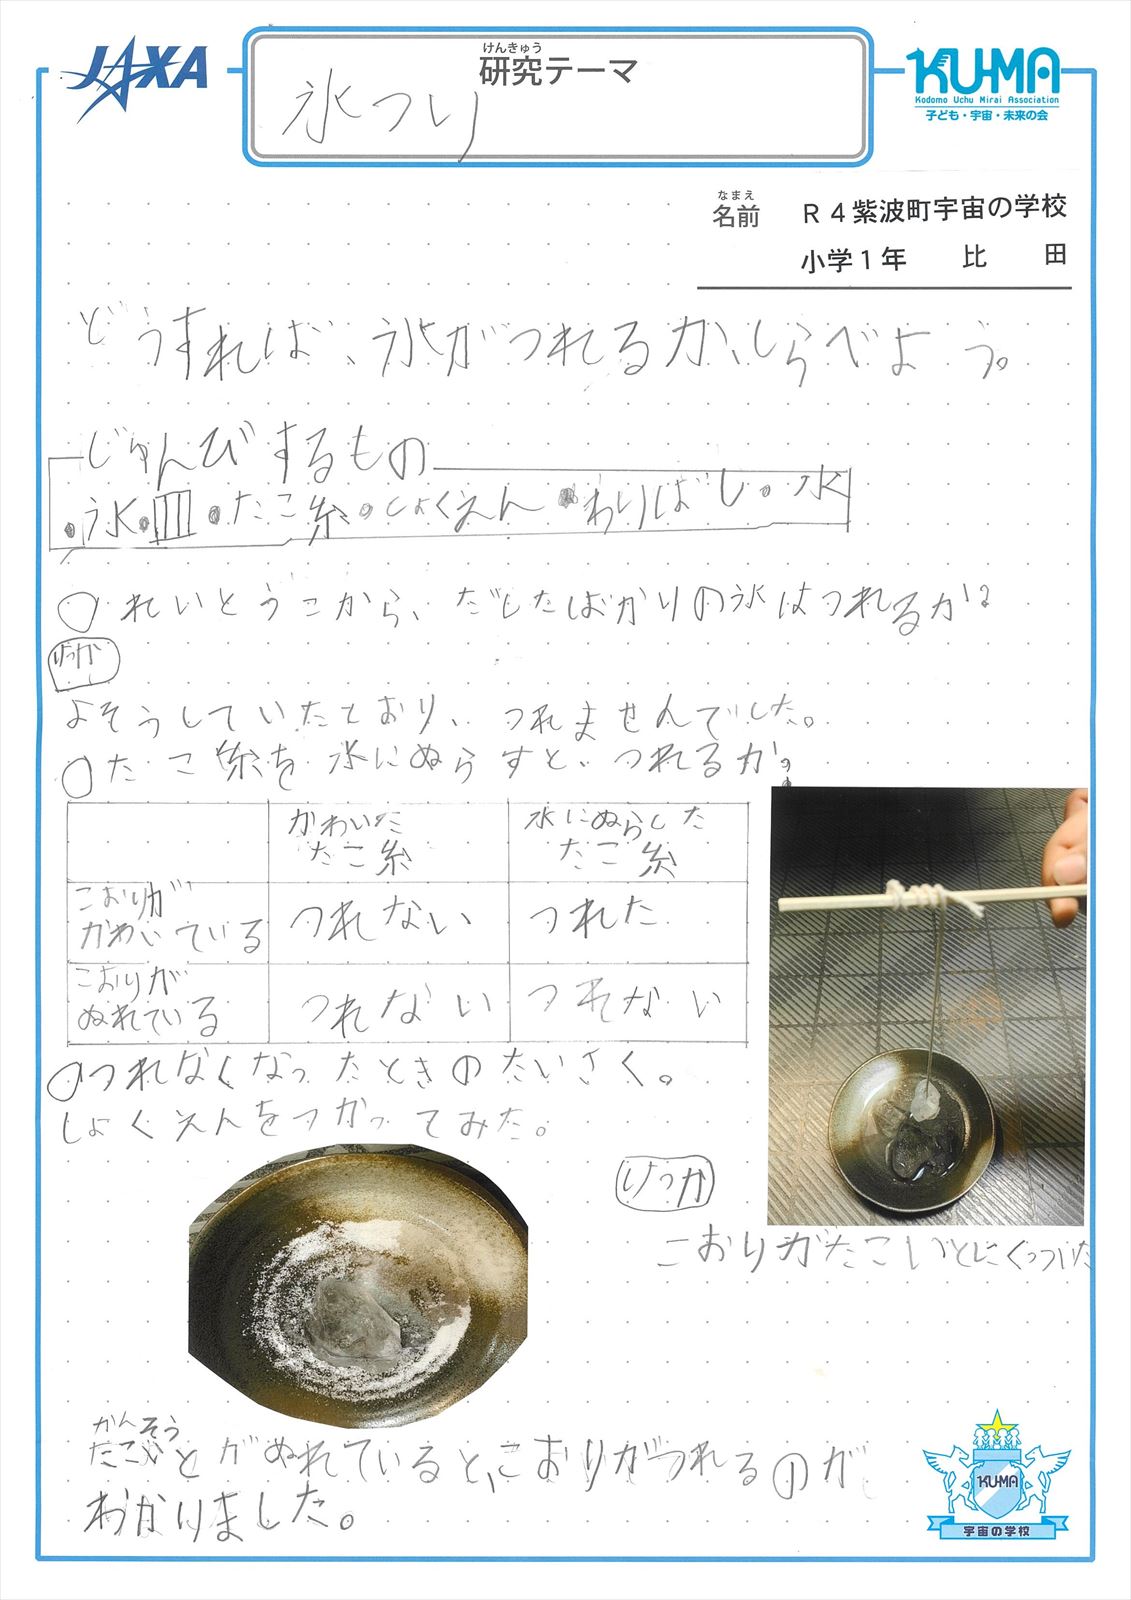 JAXA
けんきゅう
研究テーマ
氷つり
KU-MA
Kodomo Uchu Mirai Association
子ども・宇宙・未来の会
なまえ
名前 R4紫波町宇宙の学校
小学1年 比 田
どうすれば、氷がつれるか、しらべよう。
じゅんびするもの
・氷・皿・たこ糸・しょくえん・わりばし・水
○れいとうこから、だしたばかりの氷はつれるか?
けっか
よそうしていたとおり、つれませんでした。
○たこ糸を水にぬらすと、つれるか?
かわいた 水にぬらした
たこ糸 たこ糸
こおりが
かわいている つれない つれた
こおりが
ぬれている つれない つれない
○つれなくなったときのたいさく。
しょくえんをつかってみた。
けっか
こおりがたこいとにくっついた
かんそう
たこいとがぬれていると、こおりがつれるのが
わかりました。
KU-MA
宇宙の学校